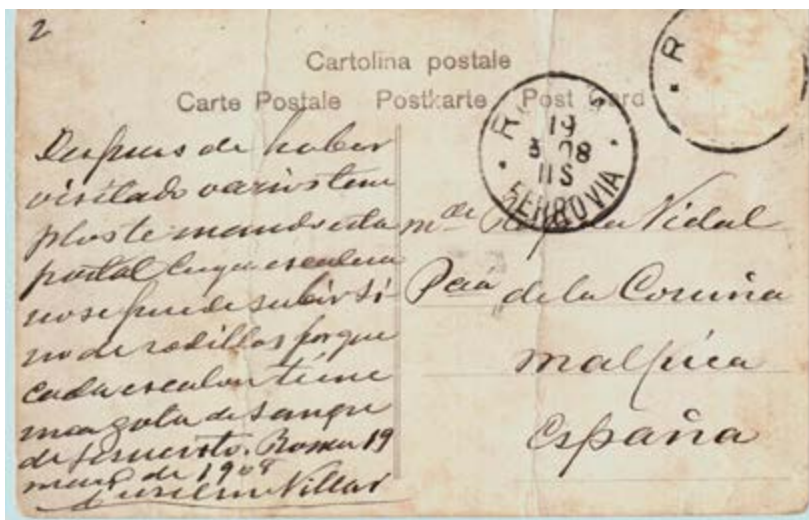 2
Cartolina postale
Carte Postale Postkarte Post Card
Despues de haber
visitado varios tem
plos te mando esta
postal cuya escalera
no se puede subir si
no de rodillas porque
cada escalon tiene
una gota de sangre
de Jesucristo. Roma 19
marzo de 1908
Villar
R
19
3 08
11S
FERROVIA
R
Mde Vidal
Pcia de la Coruña
Malpica
España